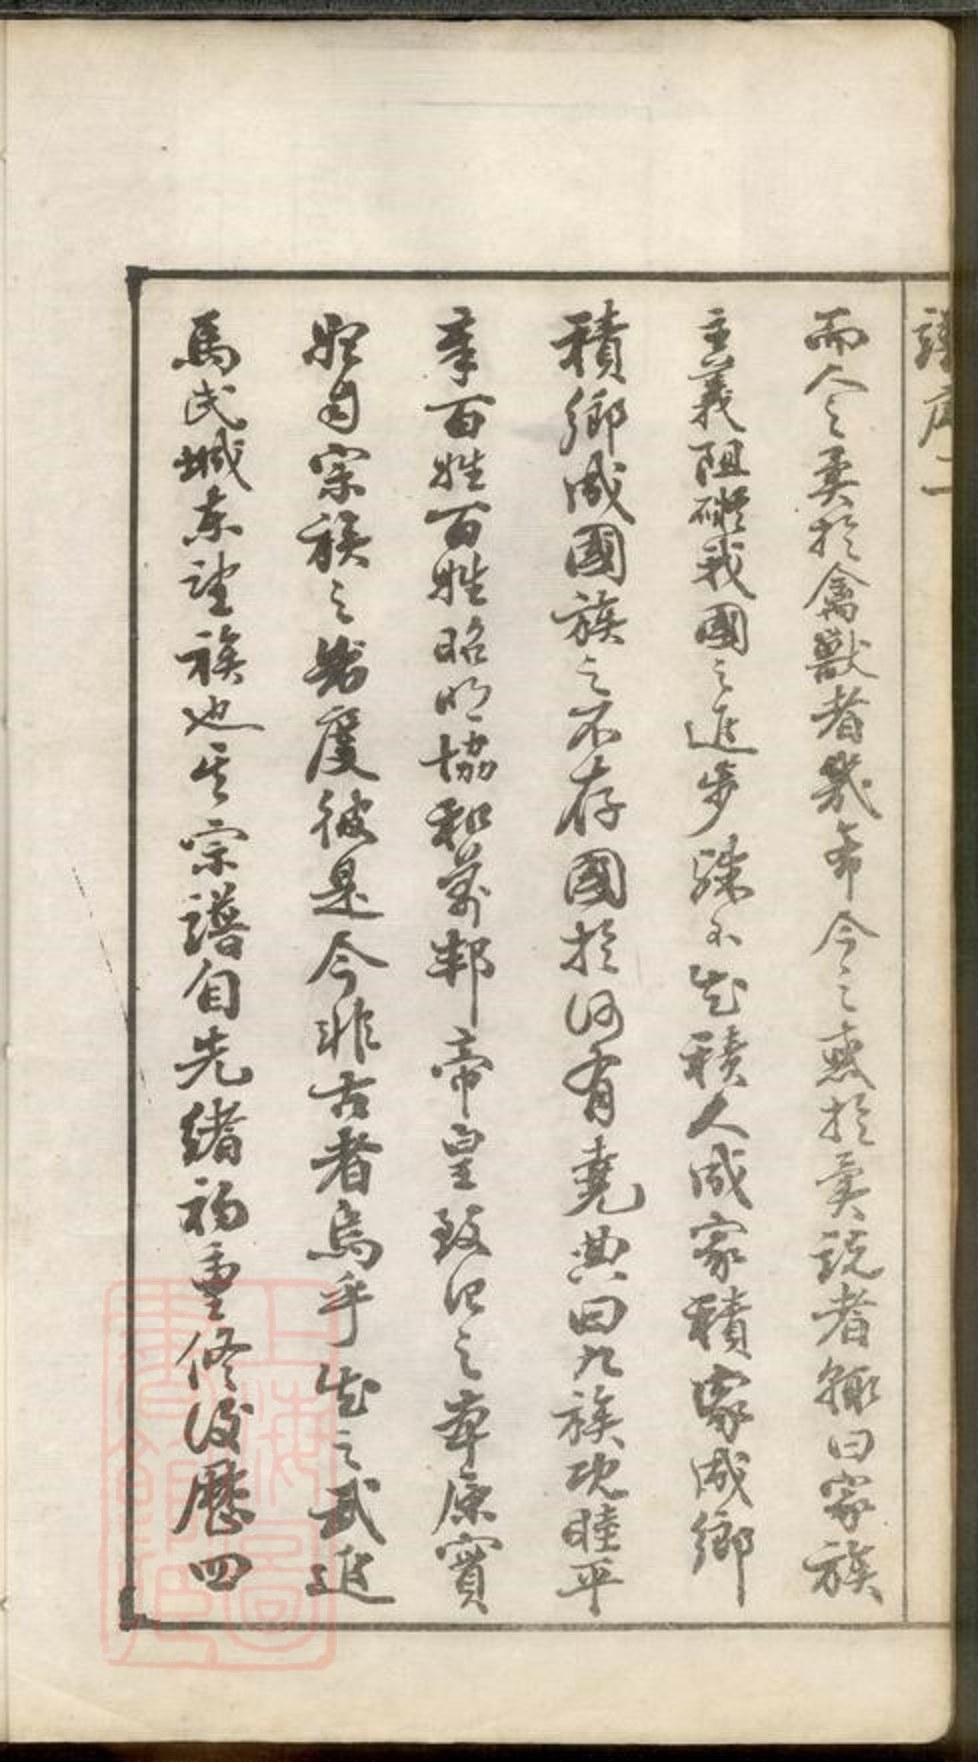 譜序二
而人之異於禽獸者幾希今之惑於異說者輒曰家族
主義阻礙我國之進步殊不知積人成家積家成鄉
積鄉成國族之不存國於何有堯典曰九族既睦平
章百姓百姓昭明協和萬邦帝皇致治之本原實
始自宗族之制度彼是今非古者烏乎知之武進
馬氏城東望族也其宗譜自先緒初重修後歷四
上海圖書館藏